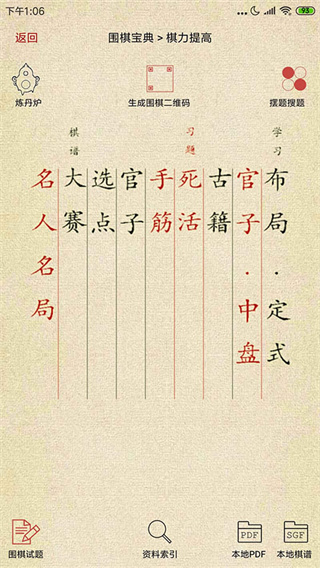 下午1:06
93
返回
围棋宝典 > 棋力提高
炼丹炉
生成围棋二维码
摆题搜题
学习
习题
棋谱
布局·定式
官子·中盘
古籍
死活
手筋
官子
选点
大赛
名人名局
围棋试题
资料索引
PDF
本地PDF
SGF
本地棋谱